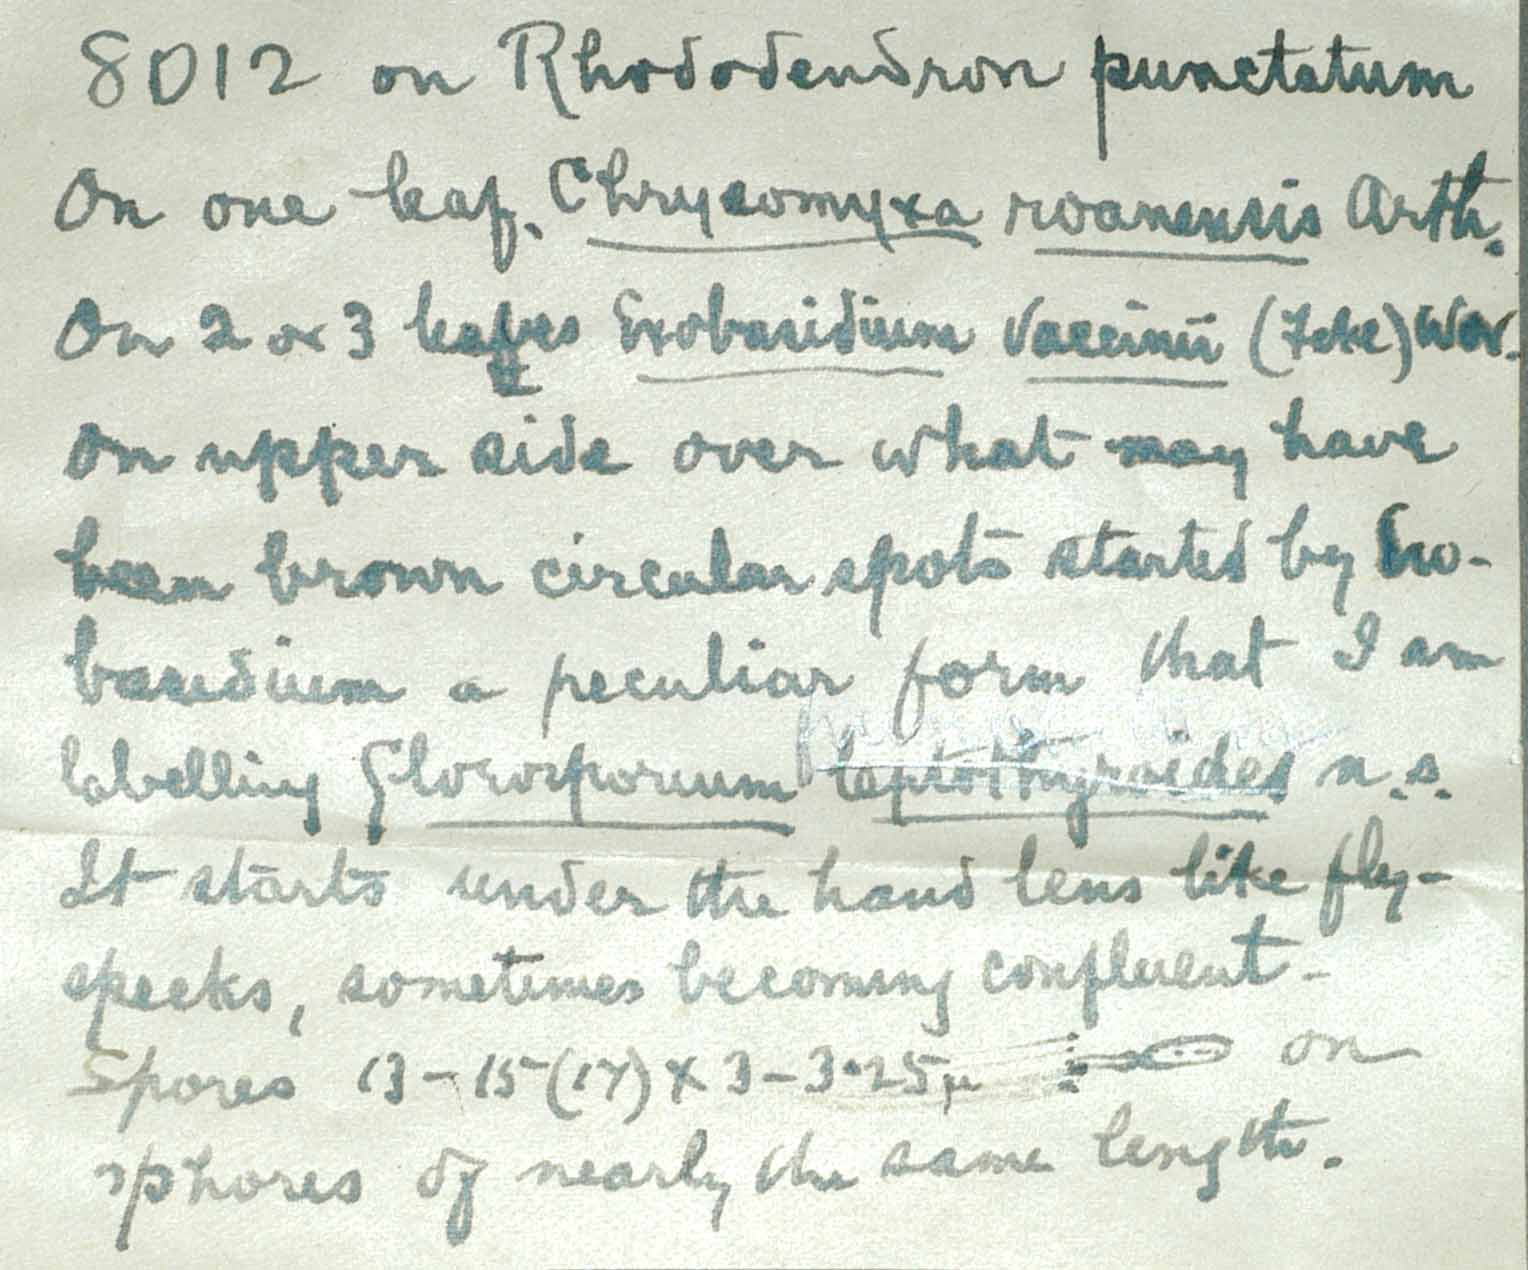 8012 on Rhododendron punctatum
On one leaf, Chrysomyxa roanensis Arth.
On 2 or 3 leaves Exobasidium Vaccinii (Fckl) Wor.
On upper side over what may have
been brown circular spots started by Exo-
basidium a peculiar form that I am
labelling Gloeosporium leptothyroides n.s.
It starts under the hand lens like fly-
specks, sometimes becoming confluent -
Spores 13-15 (17) x 3-3.25µ on
sphores of nearly the same length.